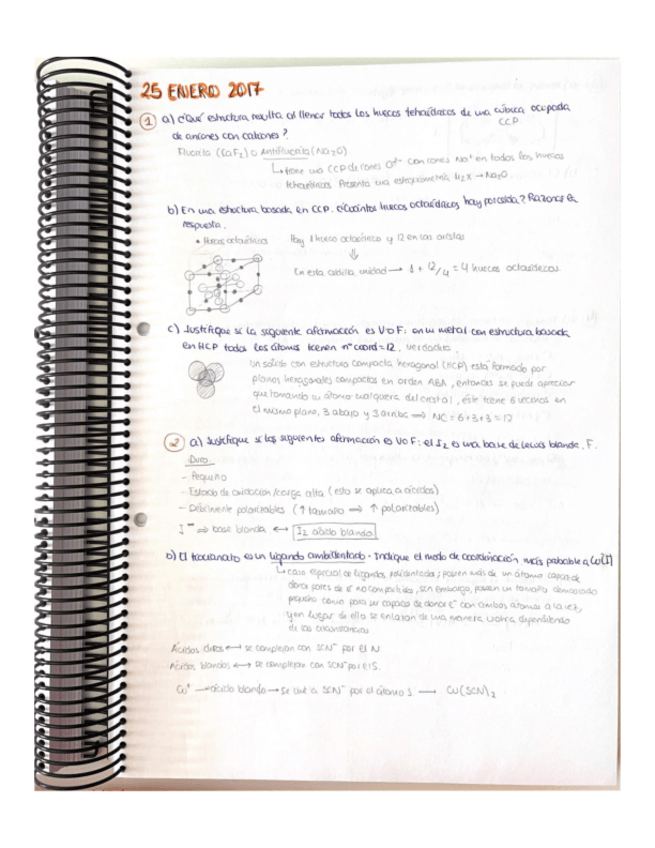 25 ENERO 2017
1 a) ¿Qué estructura resulta al llenar todos los huecos tetraédricos de una cúbica ocupada
CCP
de aniones con cationes?
Fluorita (CaF₂) o antifluorita (Na₂O)
↳ tiene una CCP de iones O²⁻ con iones Na⁺ en todos los huecos
tetraédricos. Presenta una estequiometría M₂X → Na₂O
b) En una estructura basada en CCP. ¿Cuántos huecos octaédricos hay por celda? Razone la
respuesta.
• Huecos octaédricos Hay 1 hueco octaédrico y 12 en las aristas
⇓
En esta celdilla unidad → 1 + 12/4 = 4 huecos octaédricos
c) Justifique si la siguiente afirmación es V o F: en un metal con estructura basada
en HCP todos los átomos tienen nº coord = 12. Verdadero
Un sólido con estructura compacta hexagonal (HCP) está formado por
planos hexagonales compactos en orden ABA, entonces se puede apreciar
que tomando un átomo cualquiera del cristal, éste tiene 6 vecinos en
el mismo plano, 3 abajo y 3 arriba ⇒ NC = 6+3+3 = 12
2 a) Justifique si las siguientes afirmación es V o F: el I₂ es una base de Lewis blanda. F.
Duro
- Pequeño
- Estado de oxidación/carga alta (esto se aplica a ácidos)
- Débilmente polarizables (↑ tamaño ⇒ ↑ polarizables)
I⁻ ⇒ base blanda ↔ I₂ ácido blando
b) El tiocianato es un ligando ambidentado. Indique el modo de coordinación más probable a Cu(I)
↳ caso especial de ligandos polidentados; poseen más de un átomo capaz de
donar pares de e⁻ no compartidos, sin embargo, poseen un tamaño demasiado
pequeño como para ser capaces de donar e⁻ con ambos átomos a la vez,
y en lugar de ello se enlazan de una manera u otra dependiendo
de las circunstancias
Ácidos duros ↔ se complejan con SCN⁻ por el N
Ácidos blandos ↔ se complejan con SCN⁻ por el S.
Cu⁺ → ácido blando → se une a SCN⁻ por el átomo S. → Cu(SCN)₂